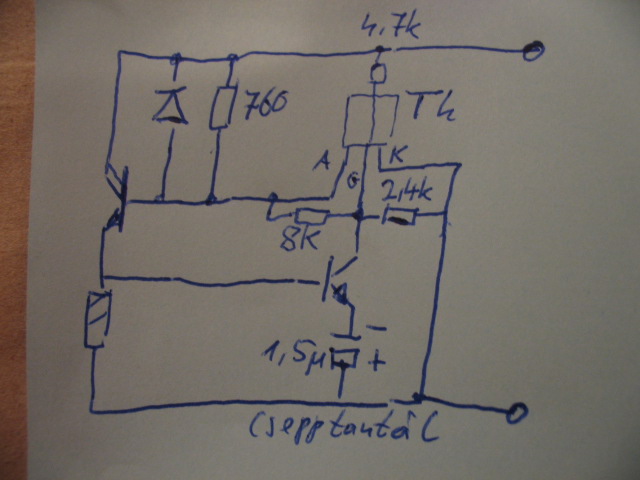 4,7k
760
Th
A
G
K
2,4k
8K
1,5µ
−
+
Csepptantál